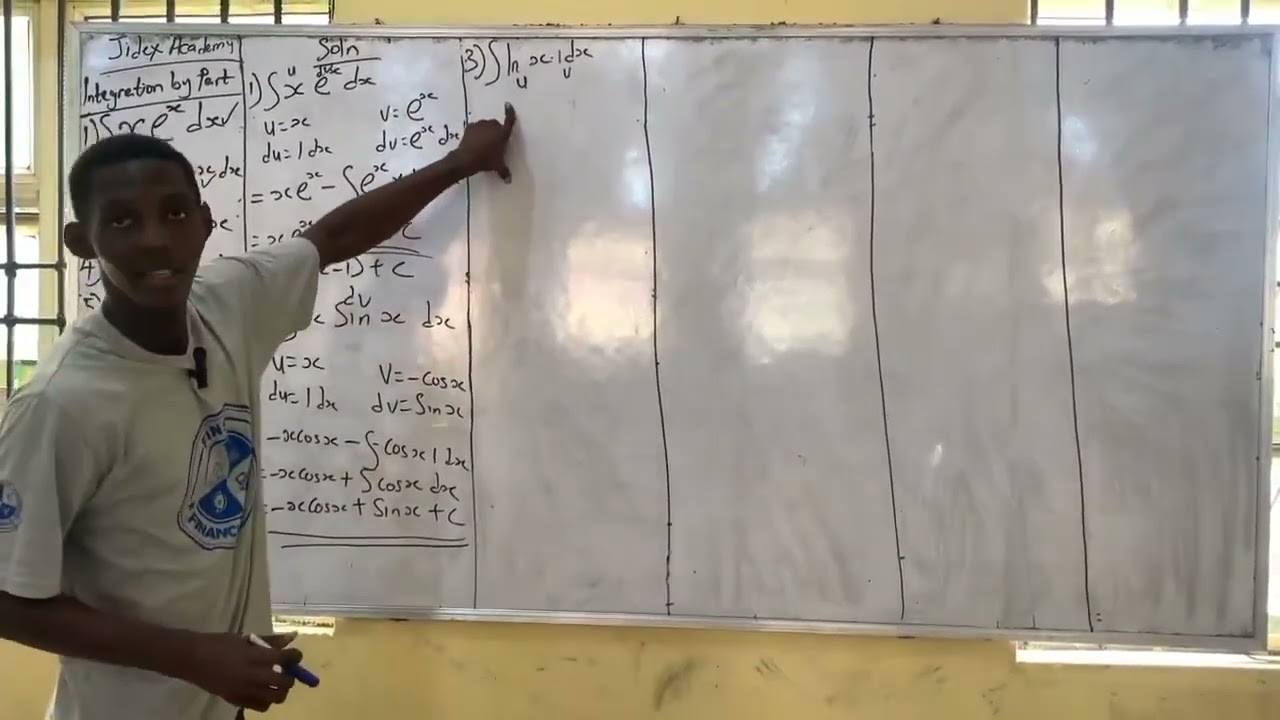 Jidex Academy
Integration by Part
1) ∫xe^x dx ✓
x dx
4)
Soln
u dv
1) ∫x e^x dx
u=x v=e^x
du=1dx dv=e^x dx
=xe^x - ∫e^x
C
-1)+C
dv
Sin x dx
u=x v=-cosx
du=1dx dv=Sinx
-xcosx - ∫-cosx 1dx
=-xcosx + ∫cosx dx
=-xcosx + Sinx + C
3) ∫ln x·1dx
u v
FIN
FINANC